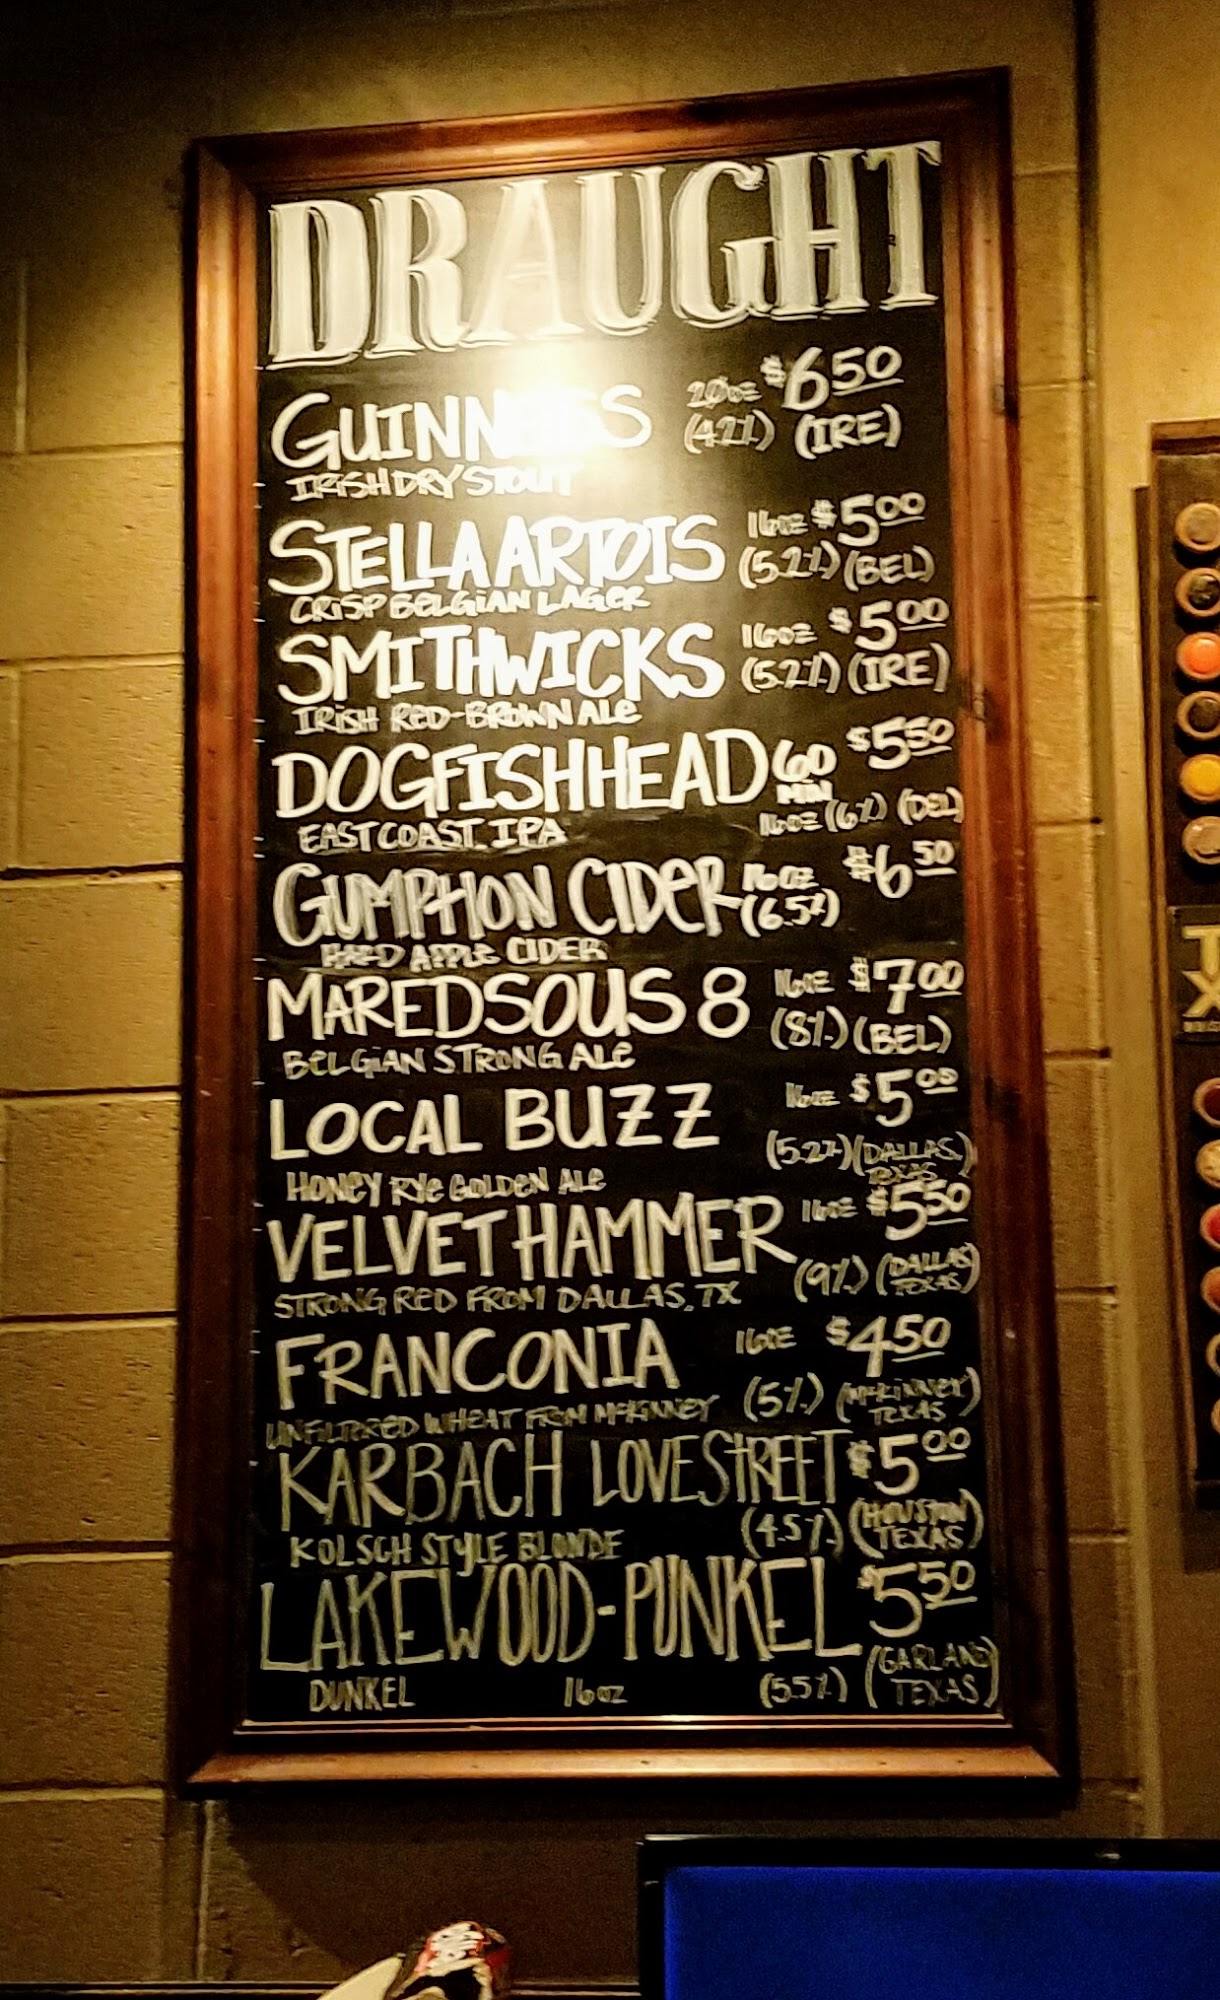 DRAUGHT
GUINNESS 20oz $6.50
(4.2%) (IRE)
IRISH DRY STOUT
STELLA ARTOIS 16oz $5.00
(5.2%) (BEL)
CRISP BELGIAN LAGER
SMITHWICKS 16oz $5.00
(5.2%) (IRE)
IRISH RED-BROWN ALE
DOGFISHHEAD 60 MIN $5.50
EAST COAST IPA 16oz (6%) (DEL)
GUMPTION CIDER 16oz $6.50
(6.5%)
HARD APPLE CIDER
MAREDSOUS 8 16oz $7.00
(8%) (BEL)
BELGIAN STRONG ALE
LOCAL BUZZ 16oz $5.00
(5.2%) (DALLAS, TEXAS)
HONEY RYE GOLDEN ALE
VELVET HAMMER 16oz $5.50
(9%) (DALLAS TEXAS)
STRONG RED FROM DALLAS, TX
FRANCONIA 16oz $4.50
(5%) (McKINNEY TEXAS)
UNFILTERED WHEAT FROM McKINNEY
KARBACH LOVE STREET $5.00
KOLSCH STYLE BLONDE (4.5%) (HOUSTON TEXAS)
LAKEWOOD-PUNKEL $5.50
DUNKEL 16oz (5.5%) (GARLAND TEXAS)
TX